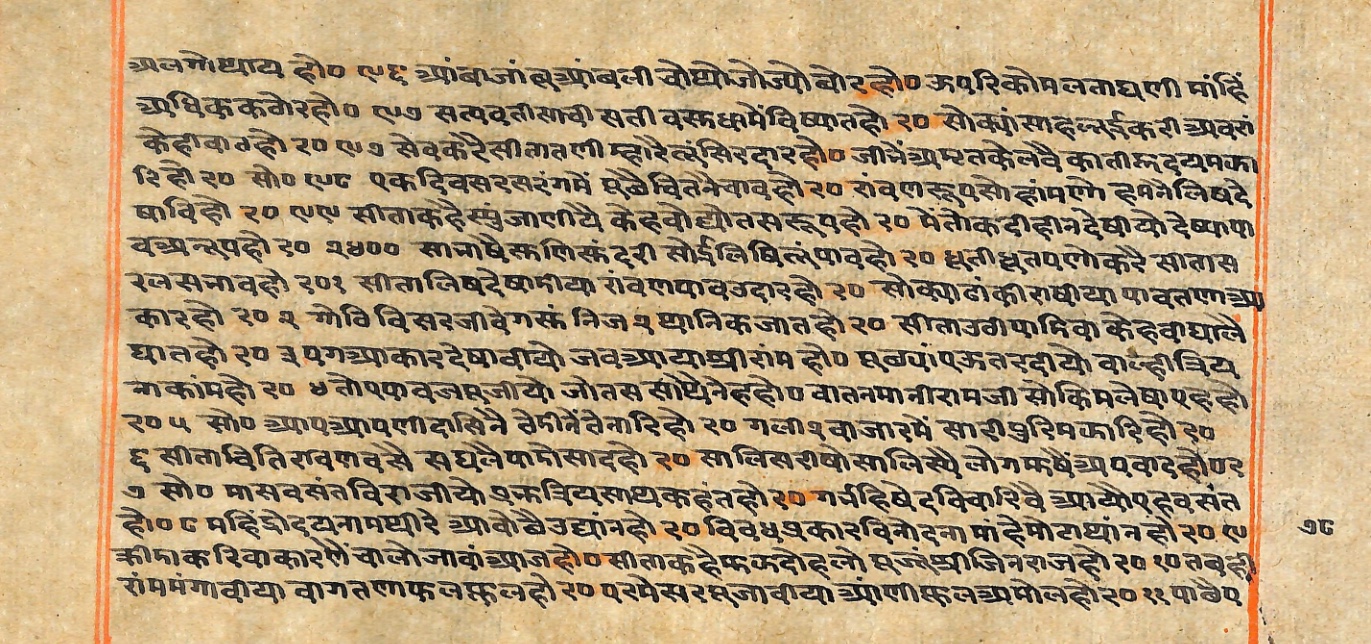 अलगोथाय हो० ९६ आंबाजांबुआंबली चोथोजोज्योबोर हो० ऊपरिकोमलताघणी मांहिं
अधिककठोरहो० ९७ सत्यवतीसाची सती वसुधामेंविष्यातहो २० सोक्यांसाहल्लईकरी अवरां
केहीवातहो २० ९७ सेवकरैसीतातणी म्हारैतूंसिरदारहो० जीभेंअमृतकेलवै कातीहृदयमझा
रिहो २० सो० ९८ एकदिवसरसरंगमें पूछैचितनैचावहो २० रांवणरूपसोहांमणो हमनेलिषदे
षाविहो २० ९९ सीताकहैस्युंजाणीयै केहवोद्योतसरूपहो २० मेतोकदीहीनदेषीयो देष्यापा
वअनूपहो २० २४०० सानाषैसुणिसुंदरी सोईलिषितूंपावहो २० धूतीधूतपणोकरै सीतास
रलसभावहो २०१ सीतालिषदेषादीया रांवणपावउदारहो २० सोक्याढांकीराषीया पावतणाआ
कारहो २० २ गोठिविसरजीवेगसुं निज २ थानिकजातहो २० सीताउठीपाछिवा केहवाघालै
घातहो २० ३ पगआकारदेषावीयो जबआयाश्रीरांम हो० पूछ्यांएऊतरदीयो वाल्हीत्रिय
नाकांमहो २० ४ तोएपावजपूजीयो जोतससौंथैनेहहो० वातनमानीरामजी सोकिमलेषाएहहो
२० ५ सो० आपआपणीदासिनै वेदीनेंतेनारिहो २० गली२बाजारमें सारीपुरिमझारिहो २०
६ सीताचितिरावणवसै सघलैपाडोसादहो २० सालिसरीषोसालिस्यै लोगमुषेंअपवादहो०२
७ सो० मासवसंतविराजीयो एकत्रियसाथकहंतहो २० गर्भहिषेदविवारिवै आयोएहवसंत
हो० ८ महिंद्रोदयनामथीरे आवोछैउद्यांनहो २० विवधप्रकारविनोदना मांहेमोटाथांन हो २० ९
क्रीडाकरिवाकारणें चालोजावांआजहो० सीताकहैमुझदोहलो पूजूंश्रीजिनराजहो २० १० तबही
रांममंगावीया बागतणाफलफूलहो २० परमेसरपूजावीया आंणीफूलअमोलहो २० ११ पाछैए
७८